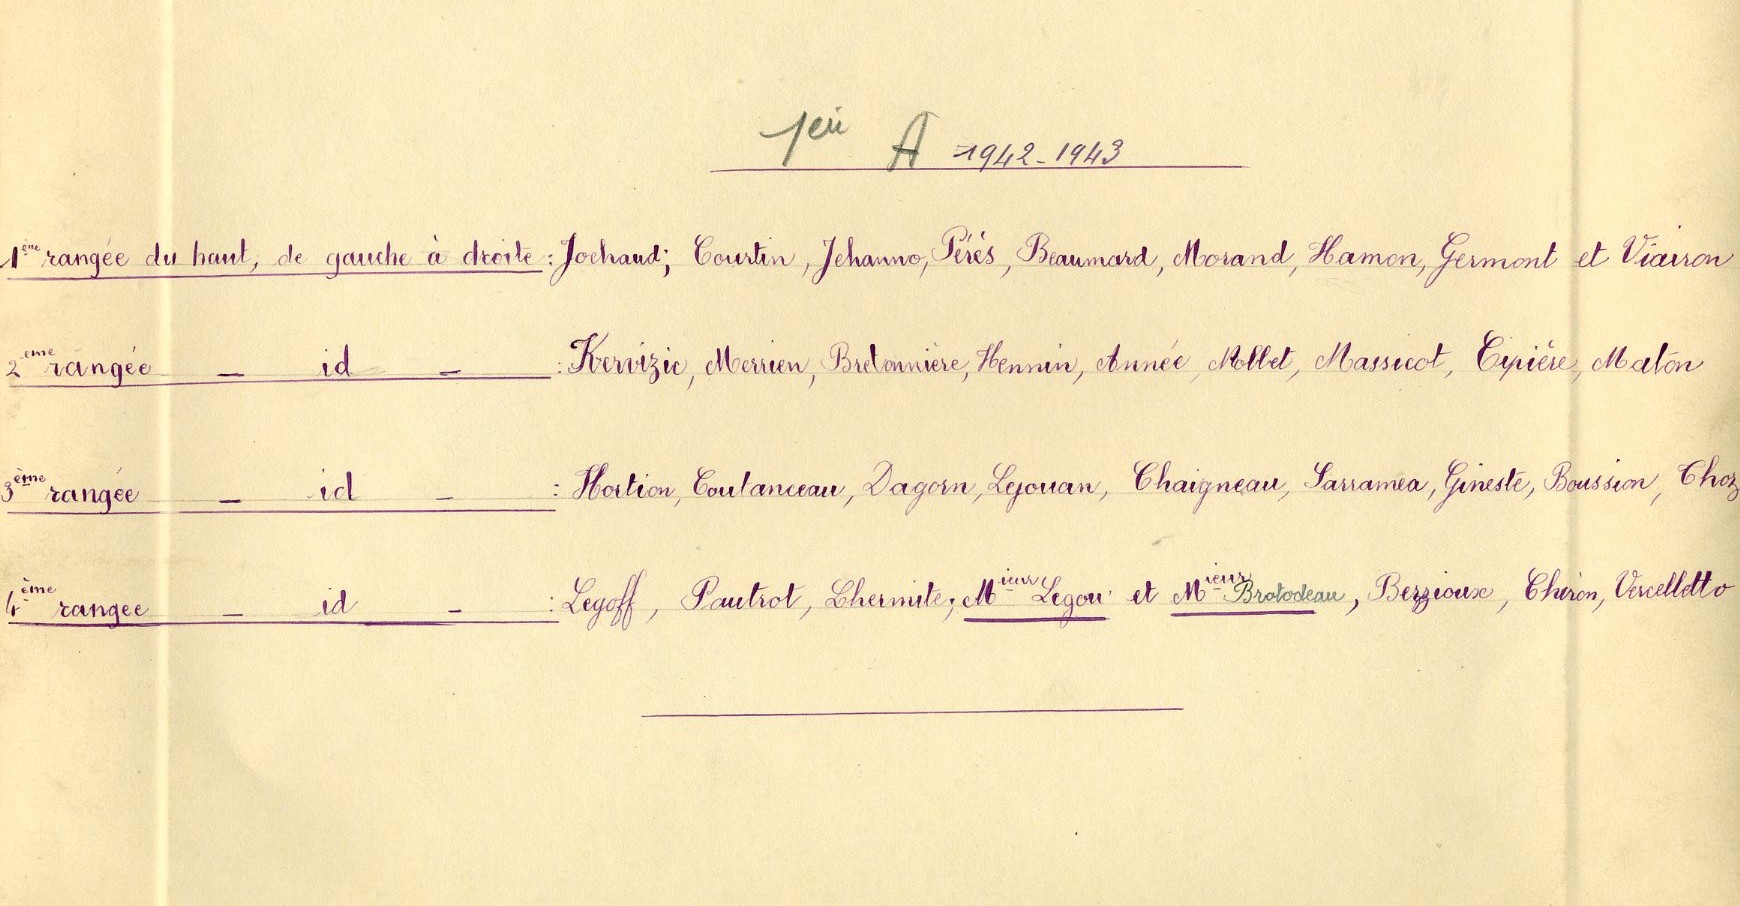 1ère A 1942-1943
1ère rangée du haut, de gauche à droite : Jochaud; Courtin, Jehanno, Pérès, Beaumard, Morand, Hamon, Germont et Viairon
2ème rangée — id — : Kervizic, Merrien, Bretonnière, Hennin, Année, Mollet, Massicot, Epière, Maton
3ème rangée — id — : Hortion, Coutanceau, Dagorn, Lejouan, Chaigneau, Sarramea, Gineste, Boussion,
4ème rangée — id — : Legoff, Pautrot, Lhermite; Mieur Legou et Mieur Bratodeau, Berzioux, Chiron, Vercelletto